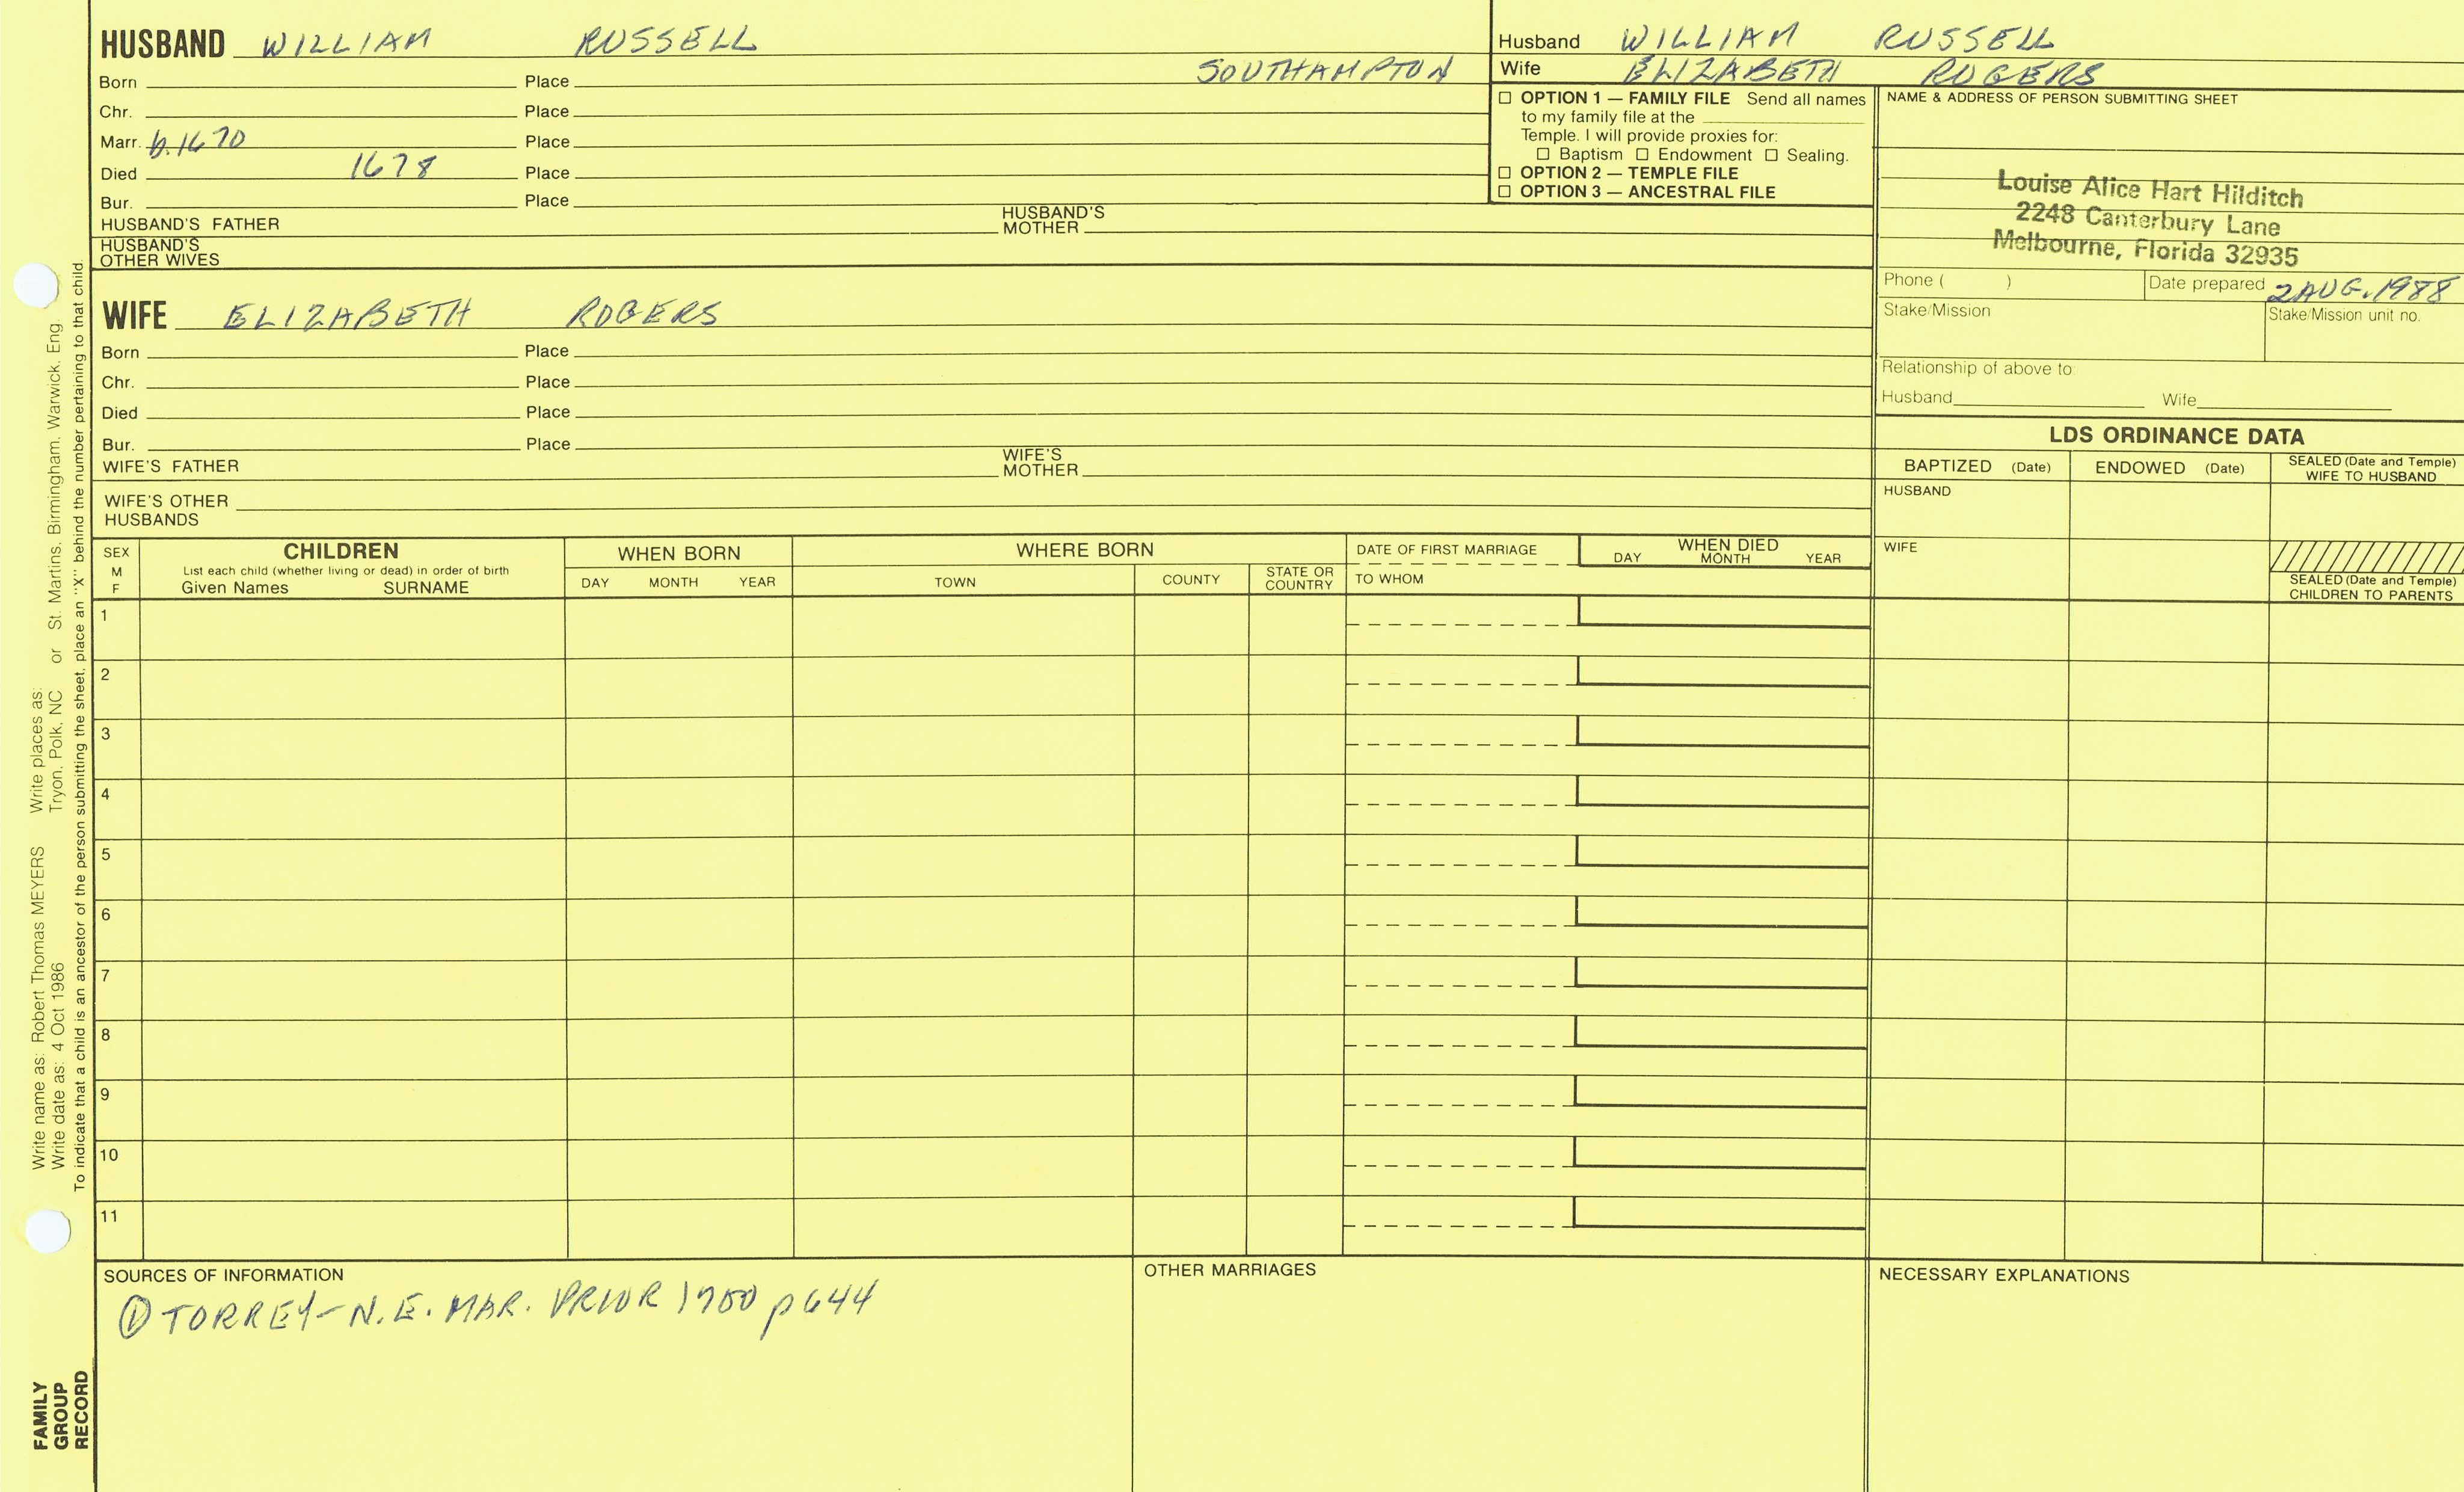 HUSBAND WILLIAM RUSSELL
SOUTHAMPTON
Born Place
Chr. Place
Marr. b.1670 Place
Died 1678 Place
Bur. Place
HUSBAND'S FATHER HUSBAND'S MOTHER
HUSBAND'S OTHER WIVES
Husband WILLIAM RUSSELL
Wife ELIZABETH ROGERS
☐ OPTION 1 — FAMILY FILE Send all names
to my family file at the
Temple. I will provide proxies for:
☐ Baptism ☐ Endowment ☐ Sealing.
☐ OPTION 2 — TEMPLE FILE
☐ OPTION 3 — ANCESTRAL FILE
NAME & ADDRESS OF PERSON SUBMITTING SHEET
Louise Alice Hart Hilditch
2248 Canterbury Lane
Melbourne, Florida 32935
Phone ( ) Date prepared 2 AUG. 1988
Stake/Mission Stake/Mission unit no.
Relationship of above to:
Husband Wife
WIFE ELIZABETH ROGERS
Born Place
Chr. Place
Died Place
Bur. Place
WIFE'S FATHER WIFE'S MOTHER
WIFE'S OTHER HUSBANDS
LDS ORDINANCE DATA
BAPTIZED (Date) ENDOWED (Date) SEALED (Date and Temple) WIFE TO HUSBAND
HUSBAND
WIFE
SEALED (Date and Temple) CHILDREN TO PARENTS
SEX M F
CHILDREN
List each child (whether living or dead) in order of birth
Given Names SURNAME
WHEN BORN
DAY MONTH YEAR
WHERE BORN
TOWN COUNTY STATE OR COUNTRY
DATE OF FIRST MARRIAGE
TO WHOM
WHEN DIED
DAY MONTH YEAR
1
2
3
4
5
6
7
8
9
10
11
SOURCES OF INFORMATION
① TORREY - N.E. MAR. PRIOR 1700 p644
OTHER MARRIAGES
NECESSARY EXPLANATIONS
Write name as: Robert Thomas MEYERS Write places as:
Write date as: 4 Oct 1986 Tryon, Polk, NC or St. Martins, Birmingham, Warwick, Eng.
To indicate that a child is an ancestor of the person submitting the sheet, place an "X" behind the number pertaining to that child.
FAMILY
GROUP
RECORD